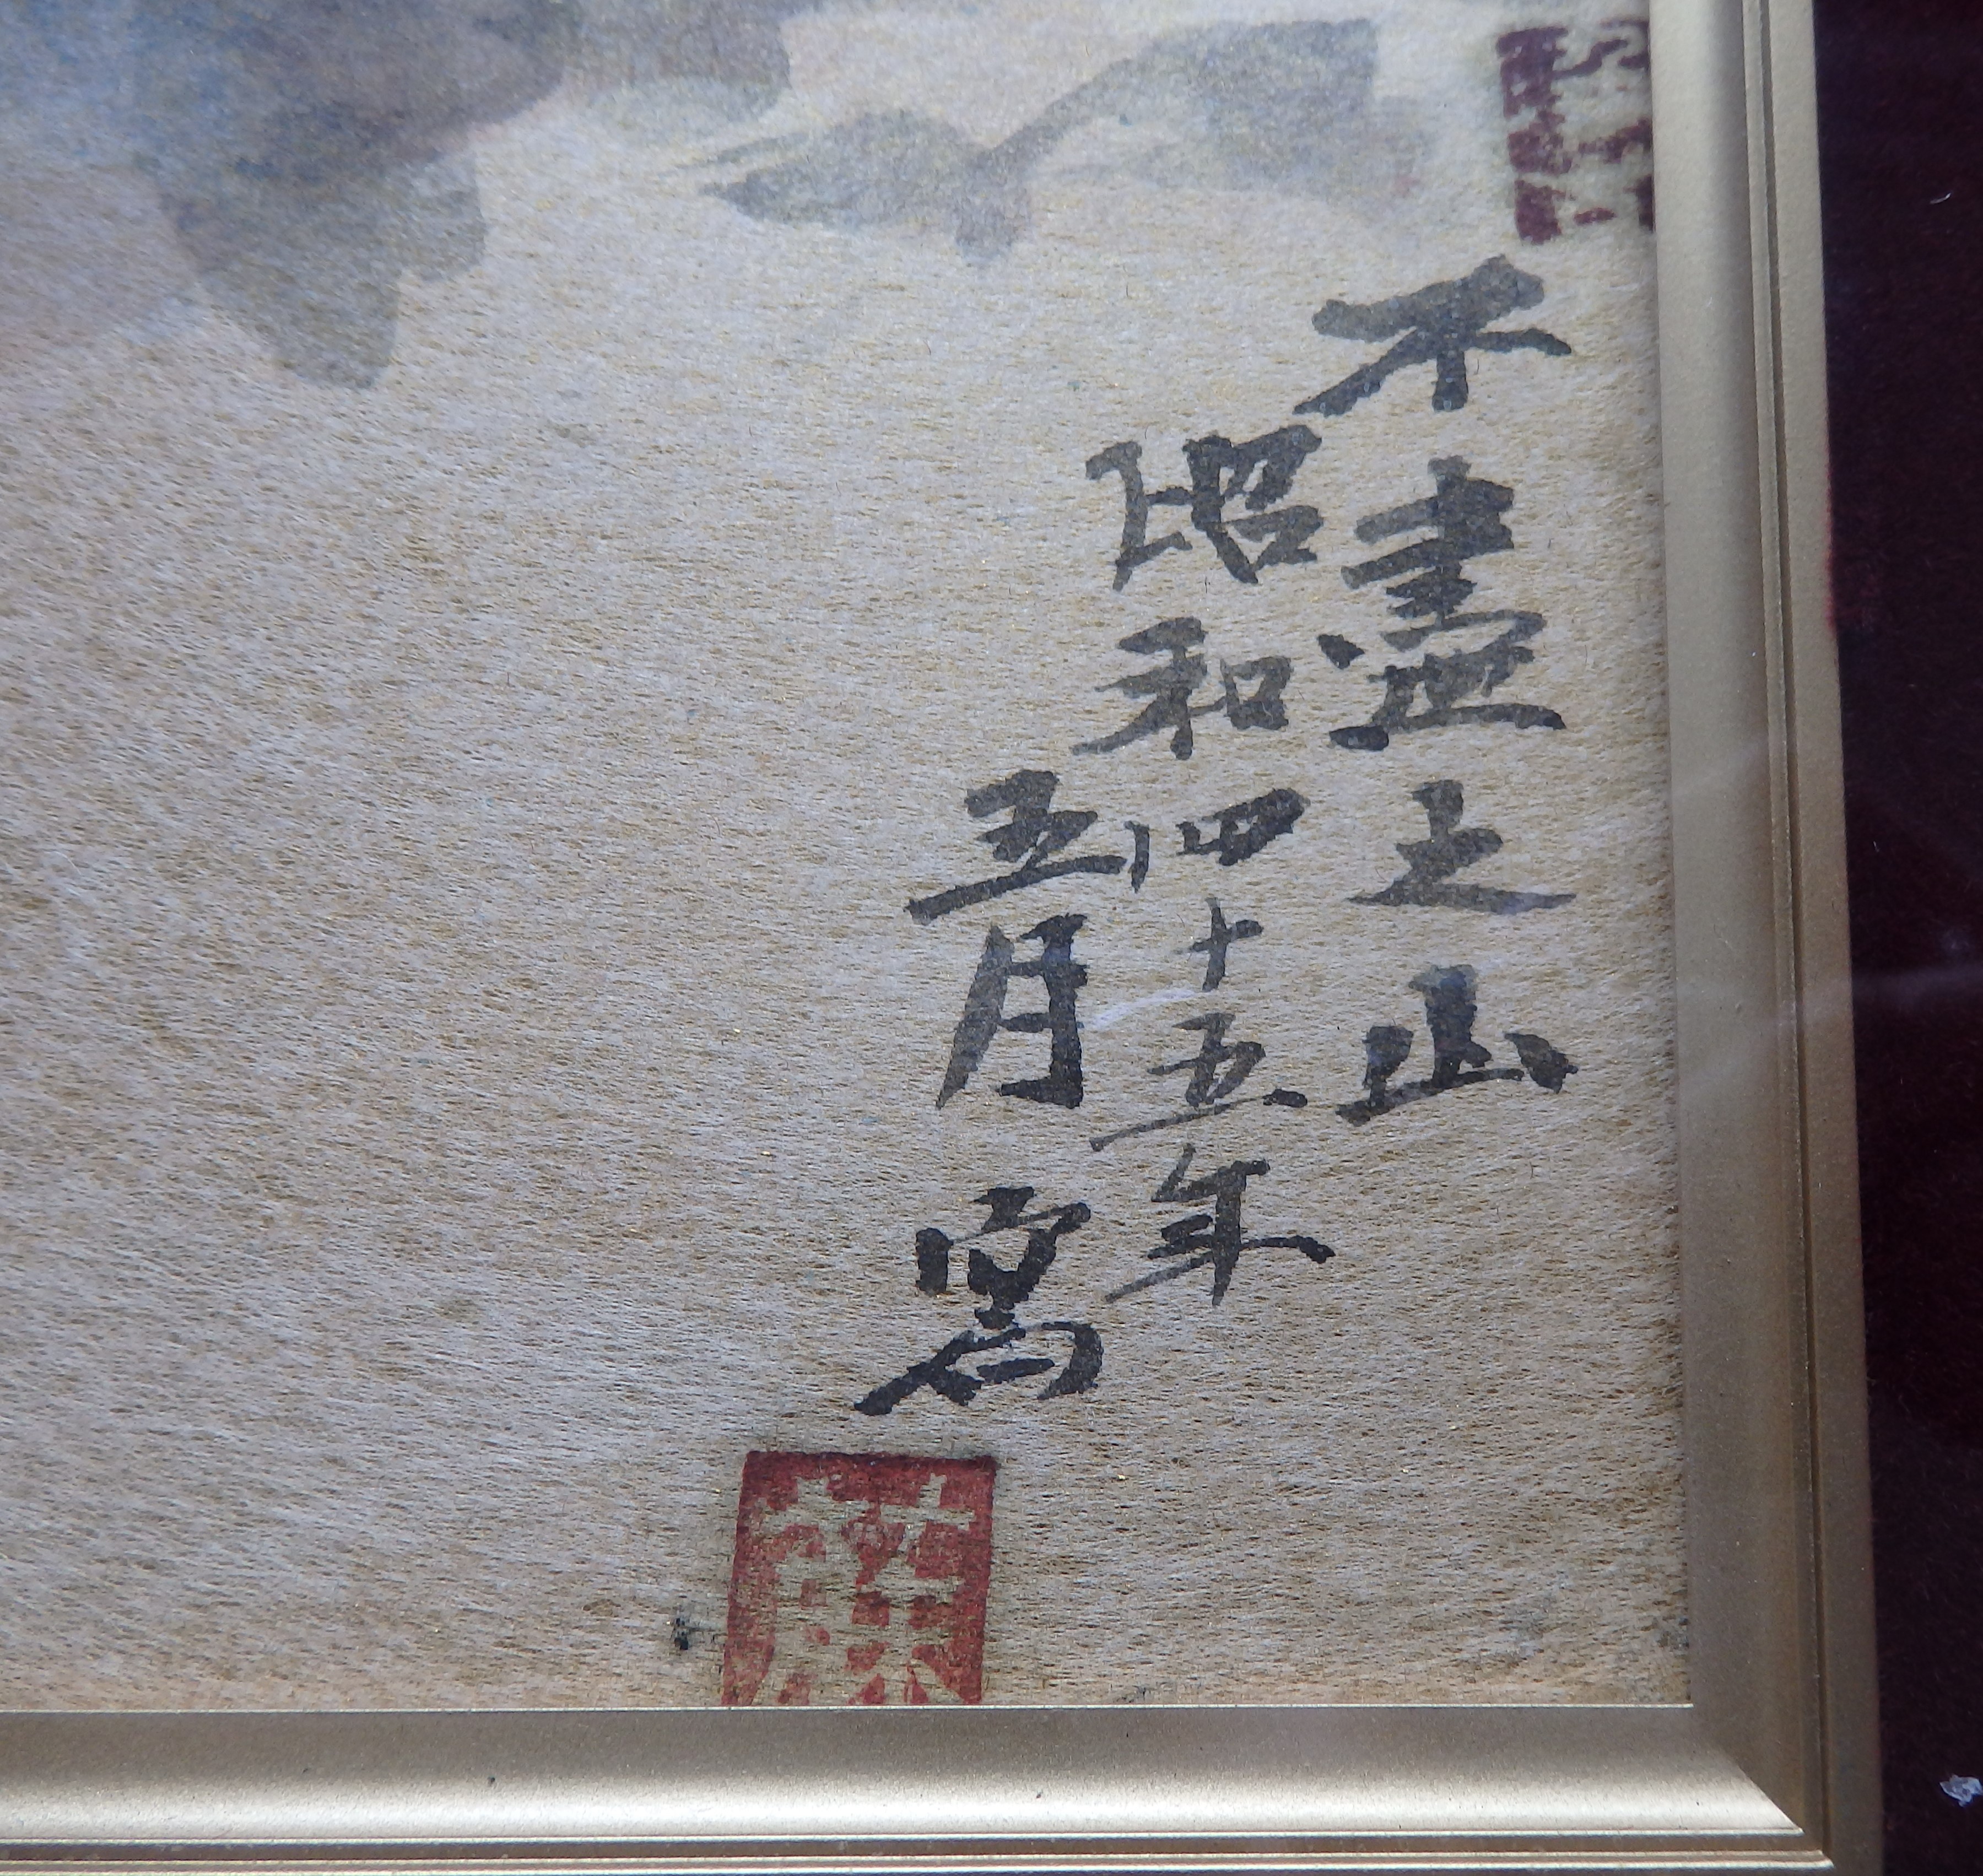 不盡之山
昭和四十五年
五月寫
藤